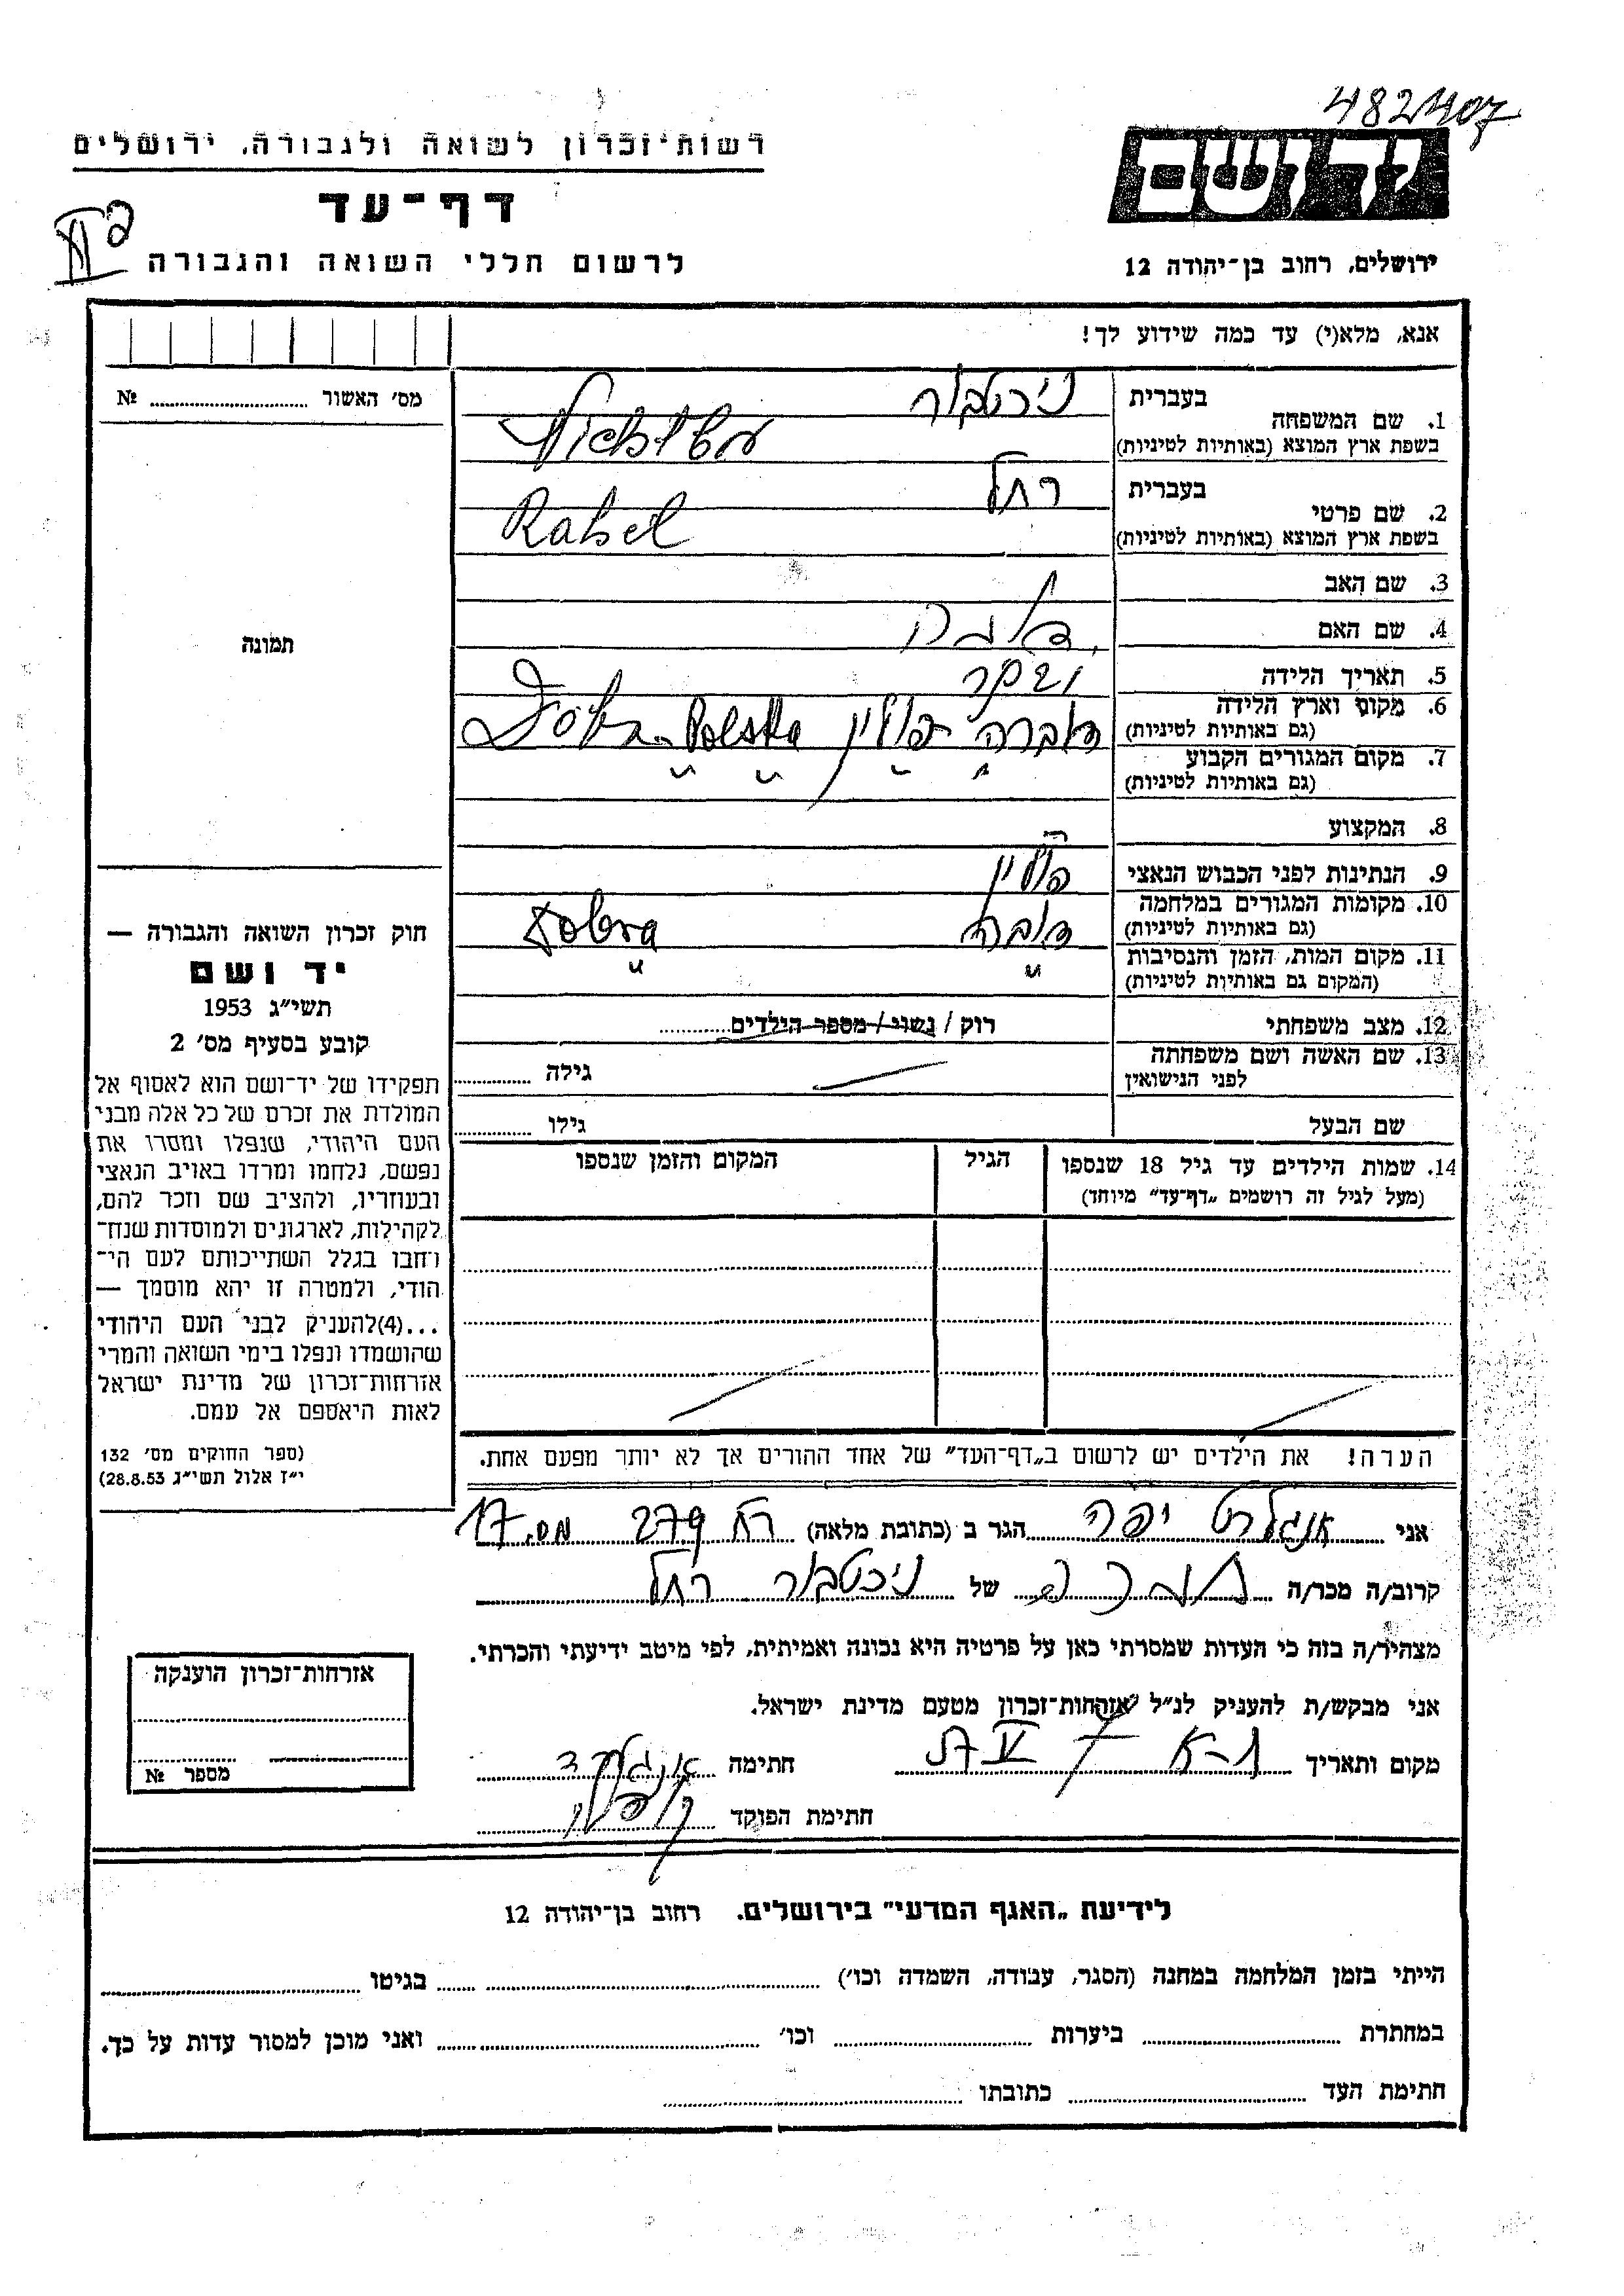 482407
רשות־זכרון לשואה ולגבורה, ירושלים
יד ושם
דף־עד
לרשום חללי השואה והגבורה
ירושלים, רחוב בן־יהודה 12
אנא, מלא(י) עד כמה שידוע לך!
מס׳ האשור № 
תמונה
1. שם המשפחה
בעברית
בשפת ארץ המוצא (באותיות לטיניות)
2. שם פרטי
בעברית רחל
בשפת ארץ המוצא (באותיות לטיניות) Rahel
3. שם האב
4. שם האם
5. תאריך הלידה
6. מקום וארץ הלידה
(גם באותיות לטיניות) פולין Polska
7. מקום המגורים הקבוע
(גם באותיות לטיניות)
8. המקצוע
9. הנתינות לפני הכבוש הנאצי פולין
10. מקומות המגורים במלחמה
(גם באותיות לטיניות)
11. מקום המות, הזמן והנסיבות
(המקום גם באותיות לטיניות)
12. מצב משפחתי רוק / נשוי / מספר הילדים
13. שם האשה ושם משפחתה
לפני הנישואין גילה
שם הבעל גילו
14. שמות הילדים עד גיל 18 שנספו הגיל המקום והזמן שנספו
(מעל לגיל זה רושמים „דף־עד" מיוחד)
הערה! את הילדים יש לרשום ב„דף־העד" של אחד ההורים אך לא יותר מפעם אחת.
חוק זכרון השואה והגבורה —
יד ושם
תשי״ג 1953
קובע בסעיף מס׳ 2
תפקידו של יד־ושם הוא לאסוף אל
המולדת את זכרם של כל אלה מבני
העם היהודי, שנפלו ומסרו את
נפשם, נלחמו ומרדו באויב הנאצי
ובעוזריו, ולהציב שם וזכר להם,
לקהילות, לארגונים ולמוסדות שנח־
רחבו בגלל השתייכותם לעם הי־
הודי, ולמטרה זו יהא מוסמך —
...(4)להעניק לבני העם היהודי
שהושמדו ונפלו בימי השואה והמרי
אזרחות־זכרון של מדינת ישראל
לאות היאספם אל עמם.
(ספר החוקים מס׳ 132
י״ז אלול תשי״ג 28.8.53)
אני אנגלרט יפה הגר ב (כתובת מלאה) רח 279 מס. 17
קרוב/ה מכר/ה של רחל
מצהיר/ה בזה כי העדות שמסרתי כאן על פרטיה היא נכונה ואמיתית, לפי מיטב ידיעתי והכרתי.
אני מבקש/ת להעניק לנ״ל אזרחות־זכרון מטעם מדינת ישראל.
מקום ותאריך חתימה
חתימת הפוקד
אזרחות־זכרון הוענקה
מספר №
לידיעת „האגף המדעי" בירושלים. רחוב בן־יהודה 12
הייתי בזמן המלחמה במחנה (הסגר, עבודה, השמדה וכו׳) בגיטו
במחתרת ביערות וכו׳ ואני מוכן למסור עדות על כך.
חתימת העד כתובתו